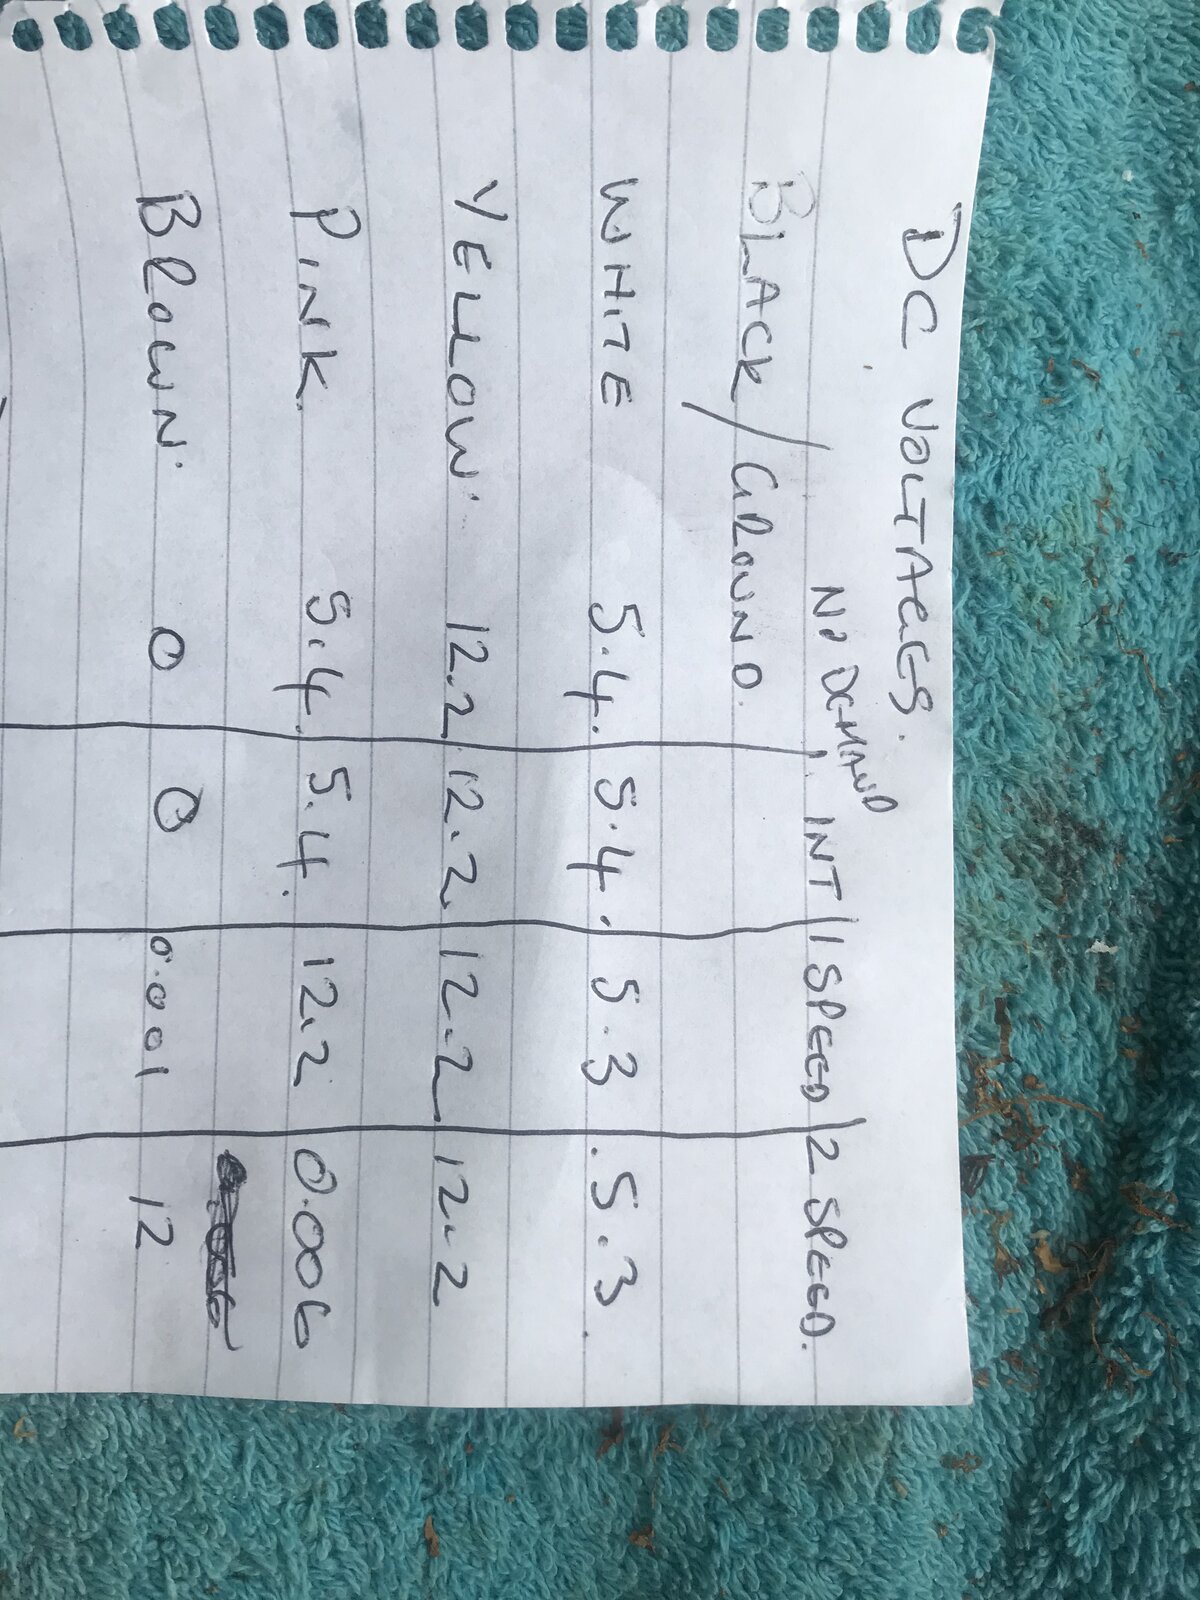 DC VOLTAGES.
NO DEMAND INT 1 SPEED 2 SPEED.
BLACK/GROUND.
WHITE 5.4. 5.4. 5.3 .5.3.
YELLOW. 12.2 12.2 12.2 12.2
PINK. 5.4. 5.4. 12.2 0.006
BROWN. 0 0 0.001 12